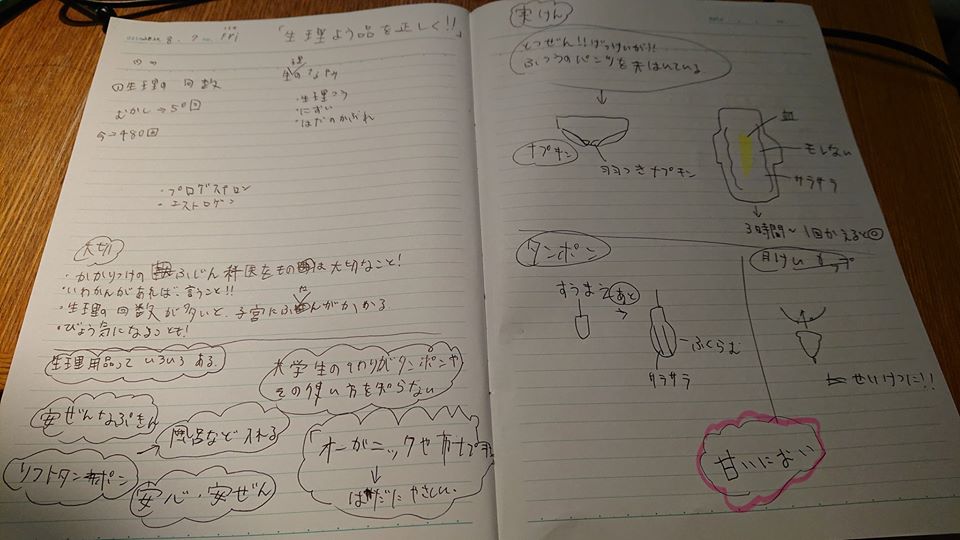 8. 9 FRI
「生理よう品を正しく!!」
①生理の回数
むかし→50回
今→480回
生のなやみ
・生理つう
・におい
・はだのかぶれ
・プロゲステロン
・エストロゲン
大切
・かかりつけのふじん科医をもつのは大切なこと!
・いわかんがあれば、言うこと!!
・生理の回数が多いと、子宮にふたんがかかる
・びょう気になることも!
生理用品っていろいろある。
大学生の9わりがタンポンや
その使い方を知らない
安ぜんなぷきん
→風呂など入れる
ソフトタンポン
安心・安ぜん
「オーガニックや布ナプキン
↓
はだにやさしい
実けん
とつぜん!!げっけいが!!
ふつうのパンツを未はいている
↓
ナプキン
羽つきナプキン
血
モレない
サラサラ
↓
3時間〜1回かえると◎
タンポン
すうまえ
あと
→
ふくらむ
サラサラ
月けいカップ
せいけつに!!
甘いにおい